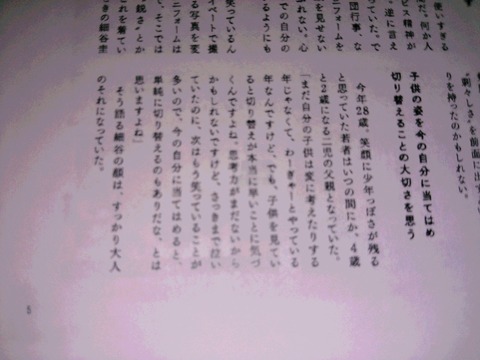 使いすぎる
だ。何か人
ビス精神が
。逆に言え
っていた。で
団行事、な
ニフォームを
を見せない
れない。心
での自分の
るようにも
笑っているん
イベートで撮
る写真を変
ニフォームは
、そこでは
鋭さ」とか
これを着てい
きの細谷圭
“刺々しさ”を前面に出す
りを持ったのかもしれない。
子供の姿を今の自分に当てはめ
切り替えることの大切さを思う
今年28歳。笑顔に少年っぽさが残る
と思っていた若者はいつの間にか、4歳
と2歳になる二児の父親となっていた。
「まだ自分の子供は変に考えたりする
年じゃなくて、わーぎゃーとやっている
年なんですけど、でも、子供を見てい
ると切り替えが本当に早いことに気づ
くんですよね。思考力がまだないから
かもしれないですけど、さっきまで泣い
ていたのに、次はもう笑っていることが
多いので、今の自分に当てはめると、
単純に切り替えるのもありだな、とは
思いますよね」
そう語る細谷の顔は、すっかり大人
のそれになっていた。
5